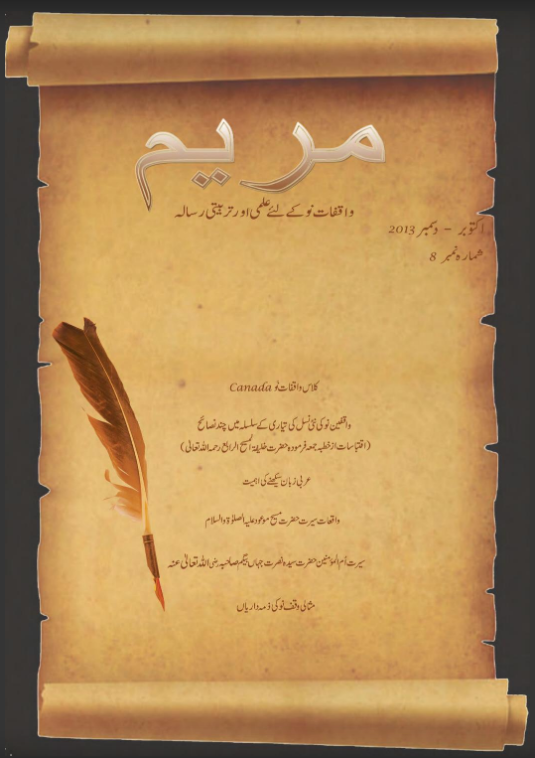 مریم
واقفات نو کے لئے علمی اور تربیتی رسالہ
اکتوبر – دسمبر 2013
شمارہ نمبر 8
کلاس واقفات نو Canada
واقفین نو کی نئی نسل کی تیاری کے سلسلہ میں چند نصائح
(اقتباسات از خطبہ جمعہ فرمودہ حضرت خلیفۃ المسیح الرابع رحمہ اللہ تعالیٰ)
عربی زبان سیکھنے کی اہمیت
واقعات سیرت حضرت مسیح موعود علیہ الصلوٰۃ والسلام
سیرت اُم المومنین حضرت سیدہ نصرت جہاں بیگم صاحبہ رضی اللہ تعالیٰ عنہ
مثالی وقف نو کی ذمہ داریاں